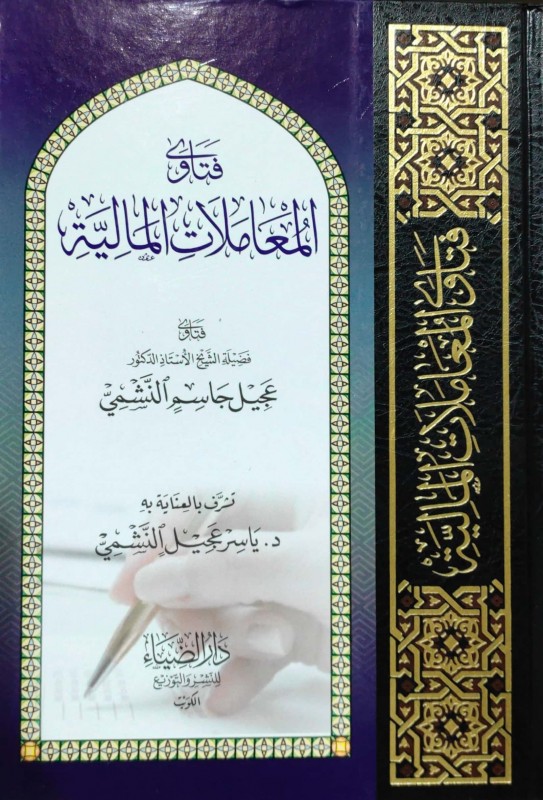 فتاوى
المُعَامَلَاتِ المَالِيَّةِ
فتاوى
فَضِيلَةِ الشَّيْخِ الأُسْتَاذِ الدّكتُور
عَجِيْل جَاسِمِ النَّشَمِيّ
تشرَّف بالعِنَايَة بِهِ
د. يَاسِر عَجِيْل النَّشَمِيّ
دَارُ الضِّيَاءِ
للنشر والتوزيع
الكويت
فتاوى المُعَامَلَاتِ المَالِيَّةِ